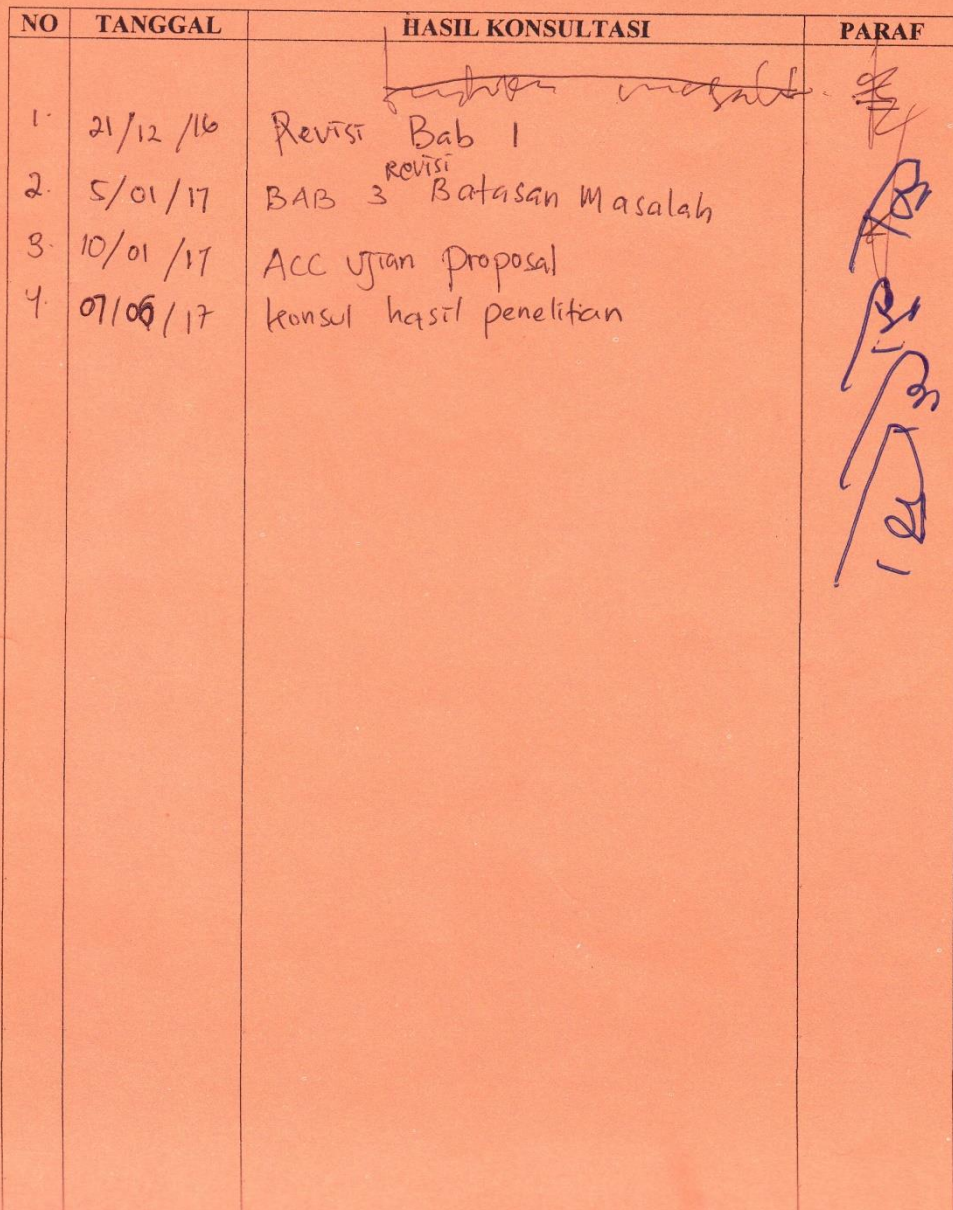 NO TANGGAL HASIL KONSULTASI PARAF
1. 21/12/16 Revisi Bab 1
2. 5/01/17 BAB 3 Revisi Batasan Masalah
3. 10/01/17 Acc Ujian Proposal
4. 07/06/17 konsul hasil penelitian